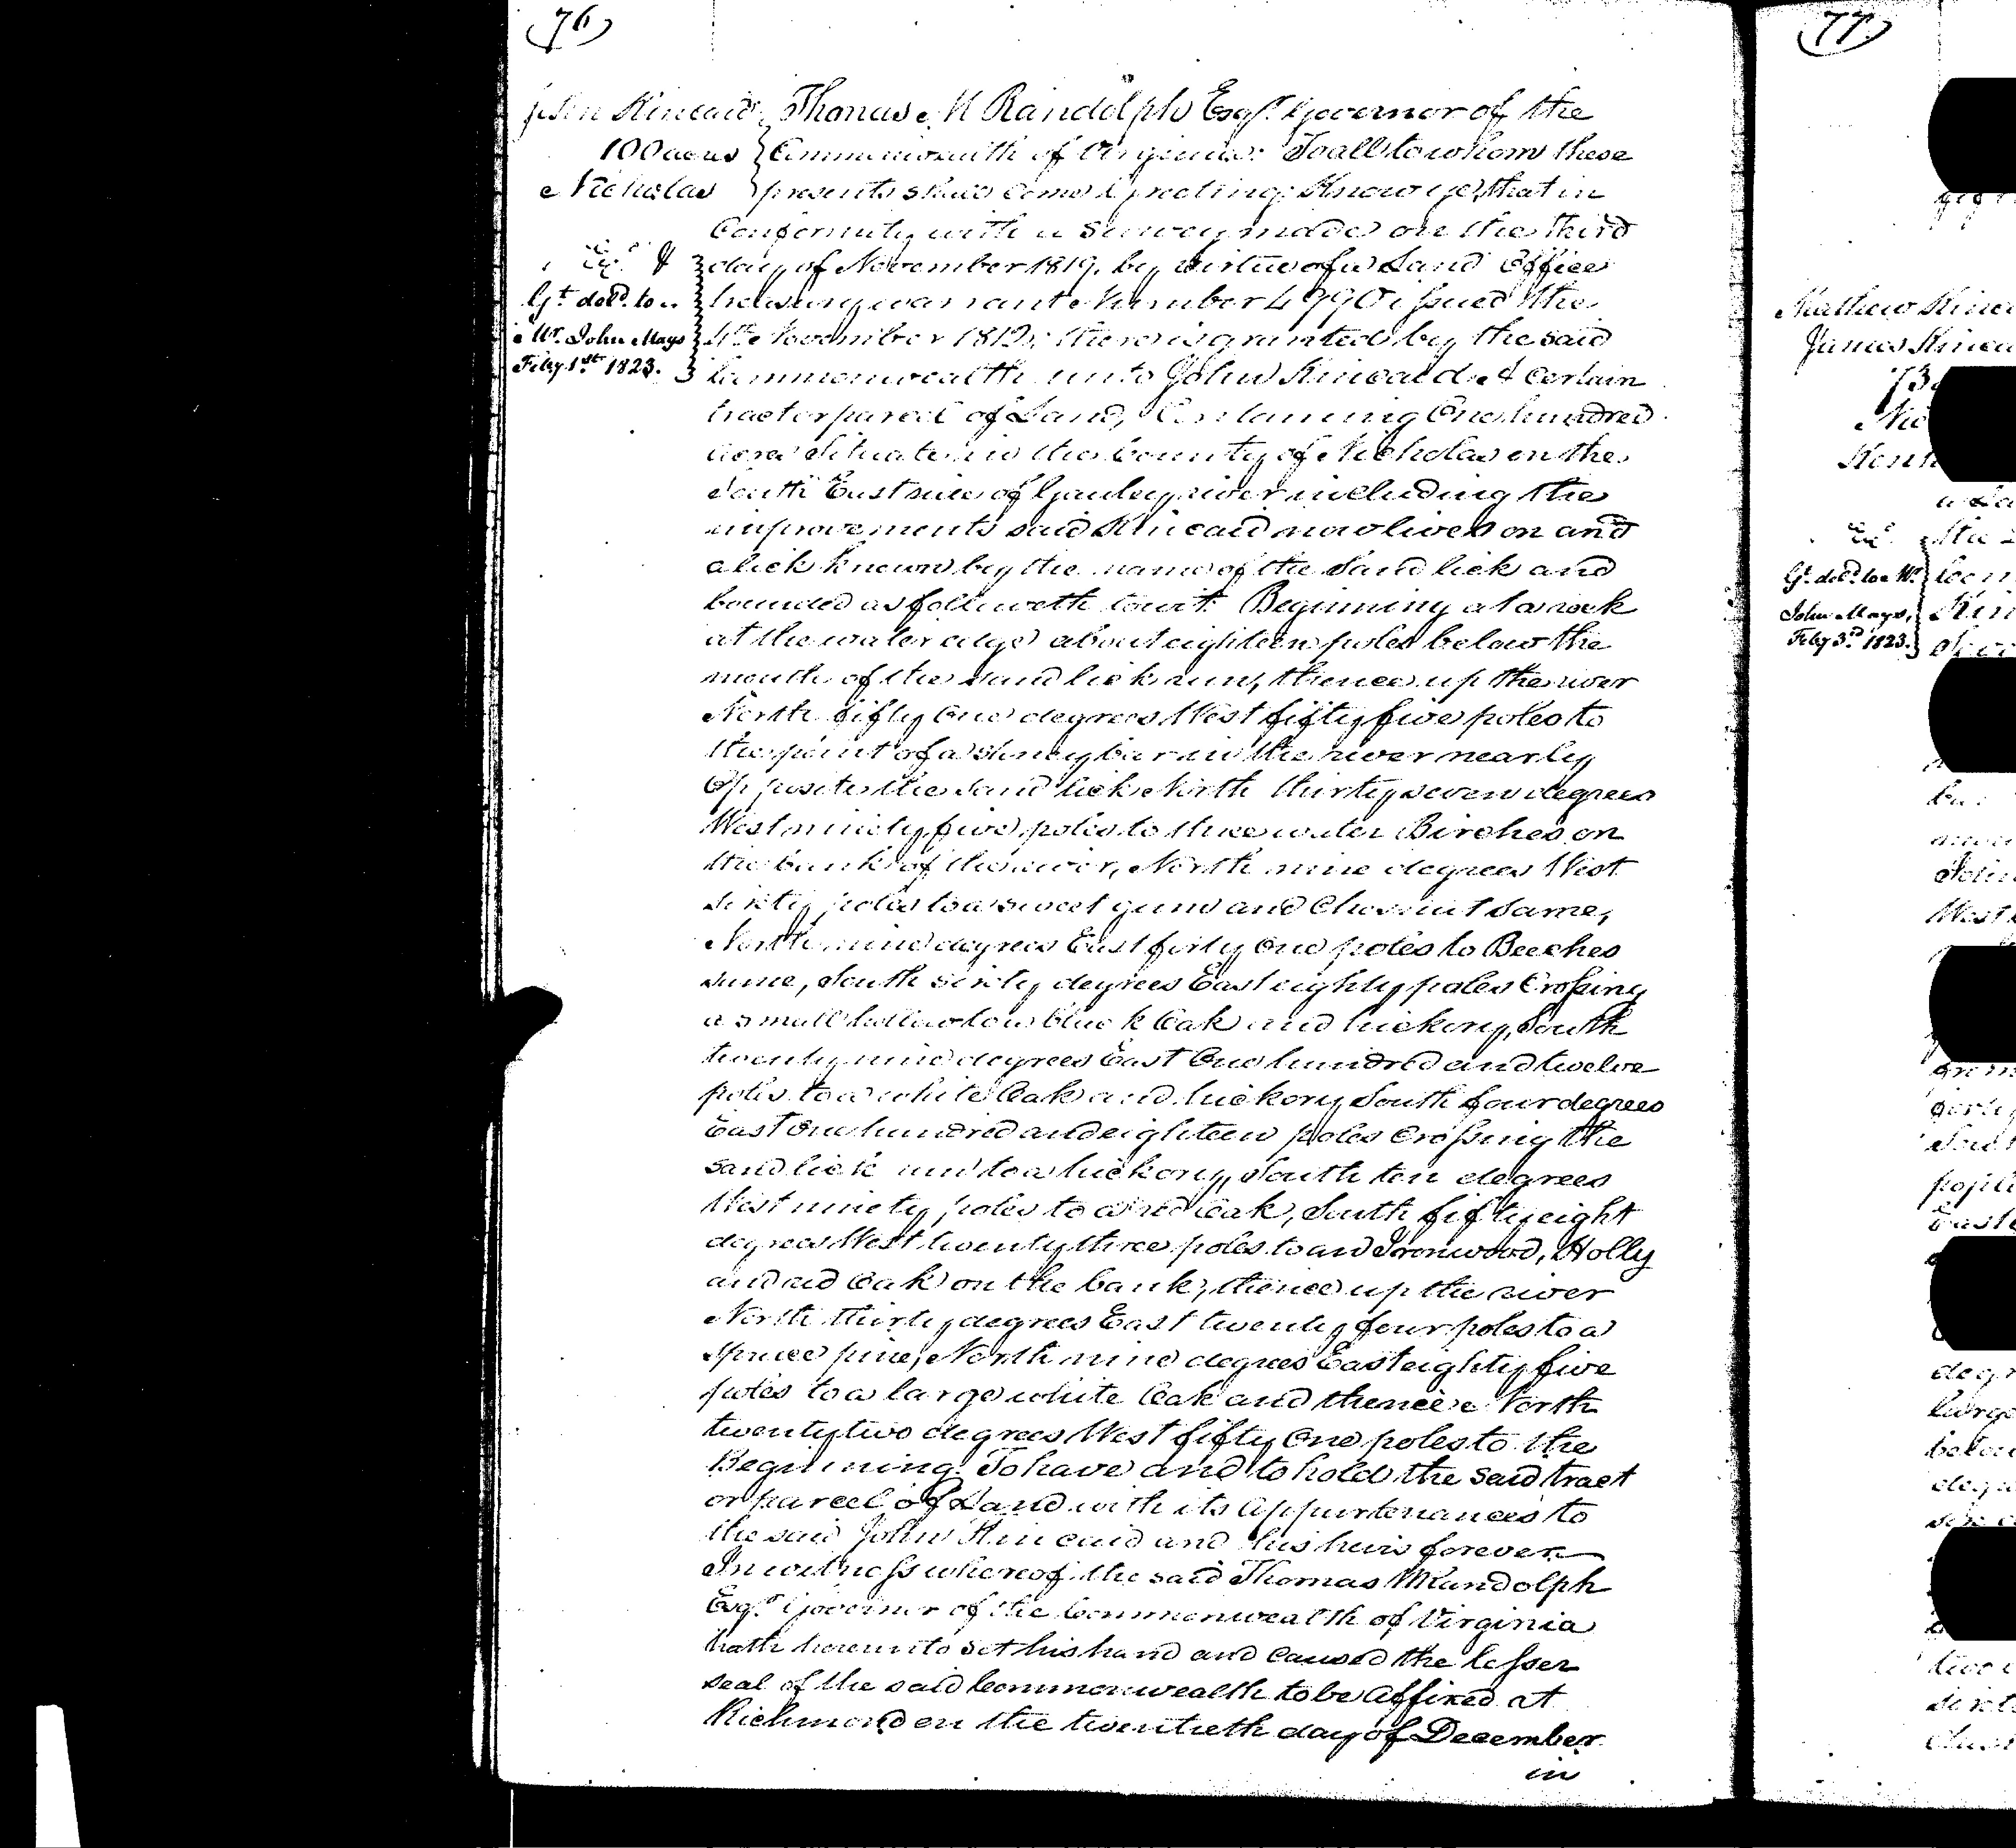 76
John Kincaid
100 acres
Nicholas
Exd &
Gt. deld. to
Mr. John Mays
Feby 1st 1823.
Thomas M Randolph Esqr. Governor of the
Commonwealth of Virginia: To all to whom these
presents shall come Greeting: Know ye, that in
Conformity with a survey made on the third
day of November 1819, by virtue of a Land Office
treasury warrant Number 4990 issued the
November there is granted by the said
Commonwealth unto John Kincaid A certain
tract or parcel of Land, Containing One hundred
acres Situate in the County of Nicholas on the
South East side of Gauley river including the
improvements said Kincaid now lives on and
a lick known by the name of the Sand lick and
bounded as followeth towit: Beginning at a rock
at the water edge about eighteen poles below the
mouth of the sand lick run, thence up the river
North fifty One degrees West fifty five poles to
the point of a Stoney bar in the river nearly
Opposite the Sand lick North thirty seven degrees
West ninety five poles to three water Birches on
the bank of the river, North nine degrees West
sixty poles to a sweet gum and Chesnut Same,
North nine degrees East forty One poles to Beeches
same, South sixty degrees East eighty poles Crossing
a small hollow to a black Oak and hickory, South
twenty nine degrees East One hundred and twelve
poles to a white Oak and hickory South four degrees
East One hundred and eighteen poles Crossing the
sand lick run to a hickory, South ten degrees
West ninety poles to a red Oak, South fifty eight
degrees West twenty three poles to an Ironwood, Holly
and red Oak on the bank, thence up the river
North thirty degrees East twenty four poles to a
spruce pine, North nine degrees East eighty five
poles to a large white Oak and thence North
twenty two degrees West fifty One poles to the
Beginning. To have and to hold the said tract
or parcel of Land with its Appurtenances to
the said John Kincaid and his heirs forever
In witness whereof the said Thomas M Randolph
Esqr. Governor of the Commonwealth of Virginia
hath hereunto set his hand and Caused the lesser
seal of the said Commonwealth to be Affixed at
Richmond on the twentieth day of December
in
77
Mathew
James
Gt. deld. to Mr.
John Mays,
Feby 3d. 1823.
West